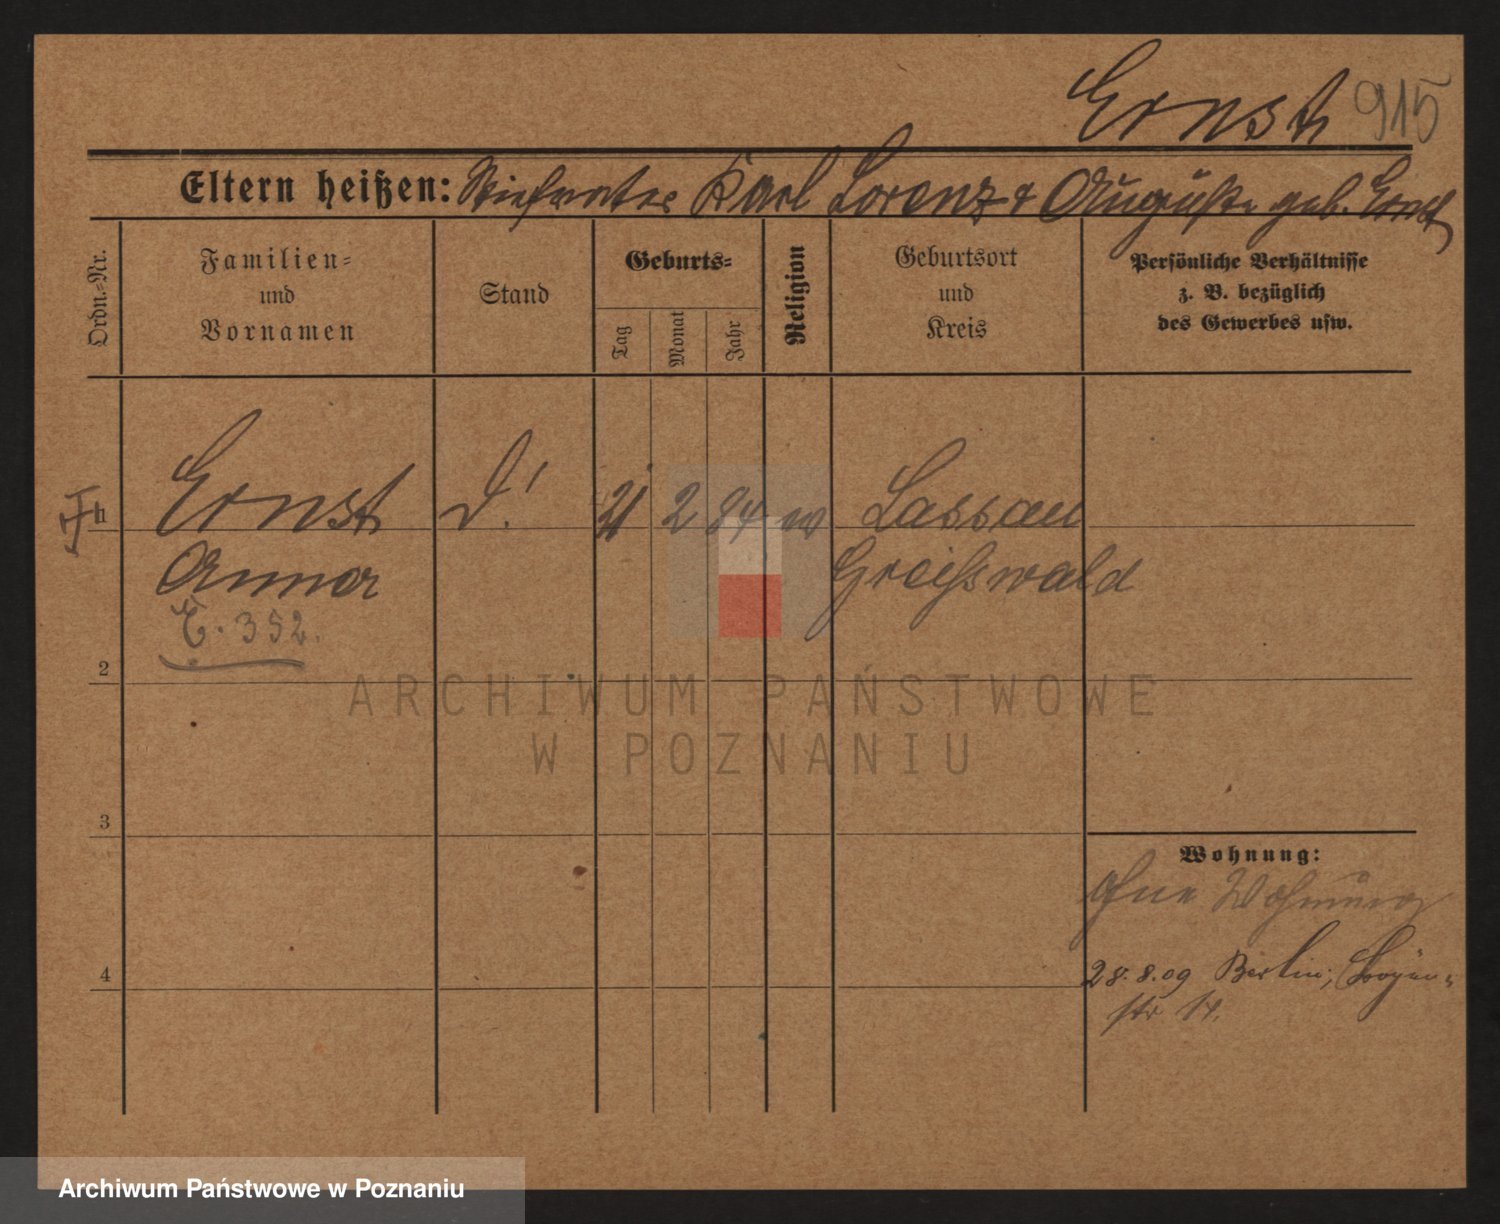 Ernst 915
Eltern heißen: Stiefvater Karl Lorenz & Auguste geb. Ernst
Ordn.-Nr.
Familien-
und
Vornamen
Stand
Geburts-
Tag
Monat
Jahr
Religion
Geburtsort
und
Kreis
Persönliche Verhältnisse
z. B. bezüglich
des Gewerbes usw.
1 Ernst 21 2 84 Lassan
Anna Greifswald
E. 352.
2
ARCHIWUM PAŃSTWOWE
W POZNANIU
3
Wohnung:
ohne Wohnung
4
28.8.09 Berlin,
str 14.
Archiwum Państwowe w Poznaniu